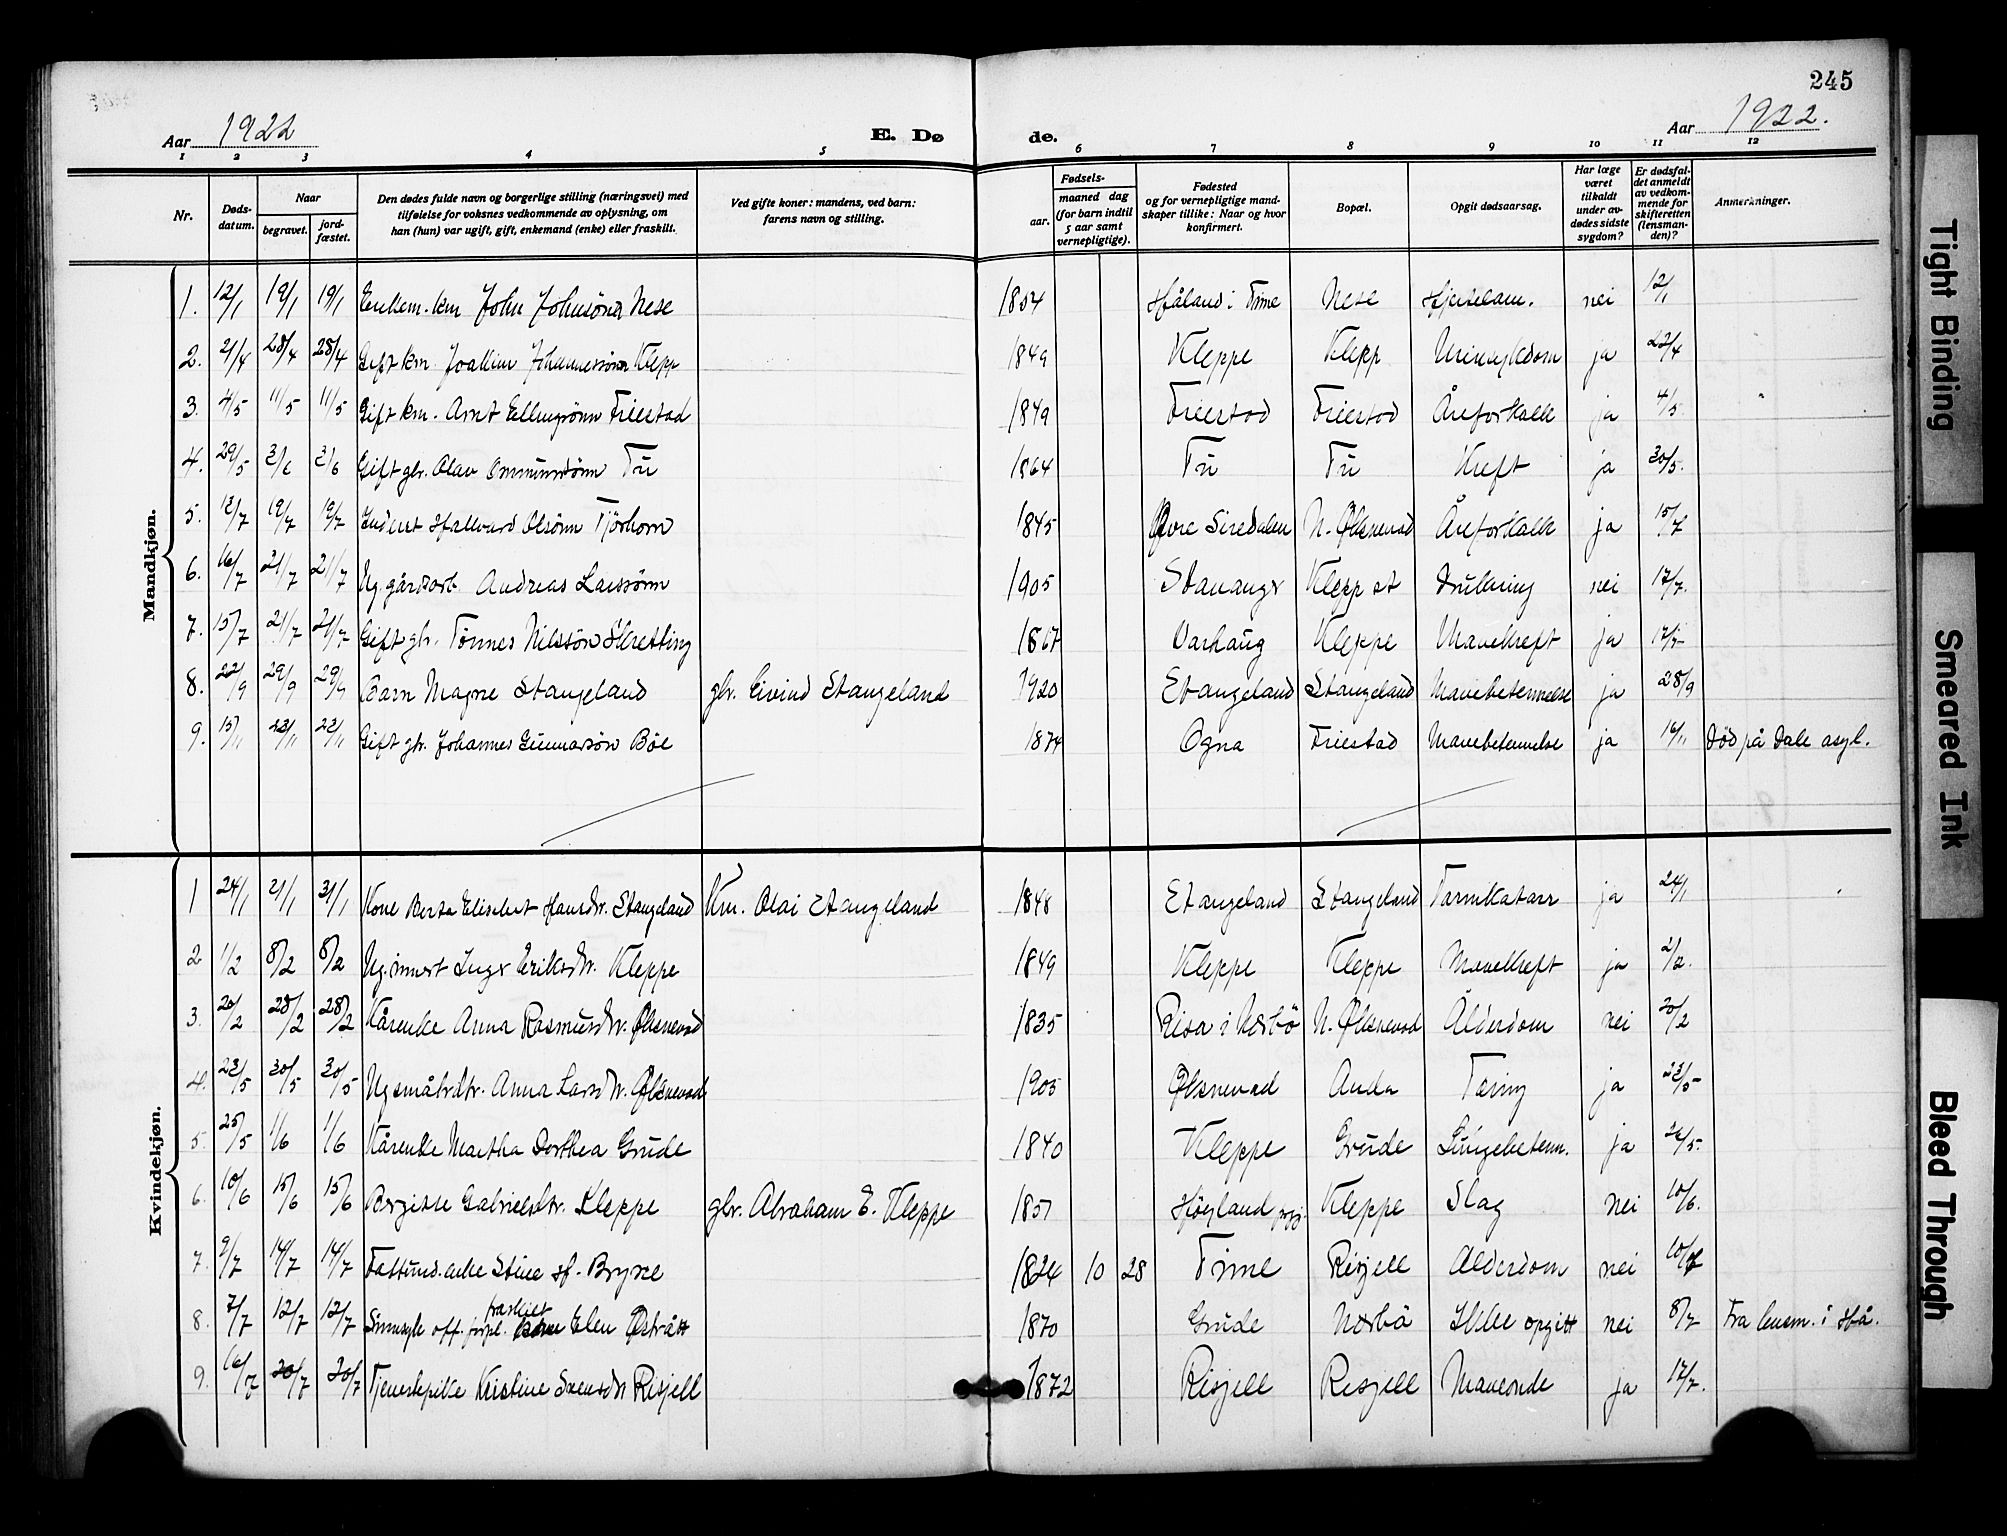 245
Aar 1922
E. Dø
de.
Aar 1922.
1 2 3 4 5 6 7 8 9 10 11 12
Nr.
Døds-
datum.
Naar
begravet.
jord-
fæstet.
Den dødes fulde navn og borgerlige stilling (næringsvei) med
tilføielse for voksnes vedkommende av oplysning, om
han (hun) var ugift, gift, enkemand (enke) eller fraskilt.
Ved gifte koner: mandens, ved barn:
farens navn og stilling.
Fødsels-
aar.
maaned dag
(for barn indtil
5 aar samt
vernepligtige).
Fødested
og for vernepligtige mand-
skaper tillike: Naar og hvor
konfirmert.
Bopæl.
Opgit dødsaarsag.
Har læge
været
tilkaldt
under av-
dødes sidste
sygdom?
Er dødsfal-
det anmeldt
av vedkom-
mende for
skifteretten
(lensman-
den)?
Anmerkninger.
Mandkjøn.
1. 12/1 19/1 19/1 Enkem. km John Johnsönn Nese 1854 Håland i Time Nese Hjertelam. nei 12/1
2. 21/4 28/4 28/4 Gift km. Joakim Johannessönn Klepp 1849 Kleppe Klepp Urinsykdom ja 22/4
3. 4/5 11/5 11/5 Gift km. Arnt Ellingsönn Friestad 1849 Friestad Friestad Åreforkalk ja 4/5.
4. 29/5 3/6 3/6 Gift gbr. Olav Ommundsönn Tu 1864 Tu Tu Kreft ja 30/5.
5. 13/7 19/7 19/7 Inderst Hallvard Olsönn Tjörhom 1845 Øvre Siredalen N. Øksnevad Åreforkalk ja 15/7
6. 16/7 21/7 21/7 Ug. gårdsarb. Andreas Larssönn 1905 Stavanger Klepp st Drukning nei 17/7.
7. 15/7 21/7 21/7 Gift gbr. Tönnes Nilssön Skretting 1867 Varhaug Kleppe Mavekreft ja 17/7
8. 22/9 29/9 29/9 Barn Magne Stangeland gbr. Eivind Stangeland 1920 Stangeland Stangeland Mavebetennelse ja 28/9
9. 15/11 23/11 23/11 Gift gbr. Johannes Gunnarsön Böe 1874 Ogna Friestad Mavebetennelse ja 16/11 Död på Dale asyl.
Kvindekjøn.
1 24/1 31/1 31/1 Kone Berta Elisabet Hansdtr. Stangeland Km. Olai Stangeland 1848 Stangeland Stangeland Tarmkatarr ja 24/1
2 1/2 8/2 8/2 Ug. innerst Inger Eriksdtr. Kleppe 1849 Kleppe Kleppe Mavekreft ja 2/2.
3. 20/2 28/2 28/2 Kårenke Anna Rasmusdtr. Øksnevad 1835 Risa i Nærbö N. Øksnevad Ålderdom nei 20/2
4. 23/5 30/5 30/5 Ug småbrdtr. Anna Larsdtr. Øksnevad 1905 Øksnevad Anda Tæring ja 23/5
5. 25/5 1/6 1/6 Kårenke Martha Dorthea Grude 1840 Kleppe Grude Lungebetenn. ja 26/5.
6. 10/6 15/6 15/6 Bergitte Gabrielsdtr. Kleppe gbr. Abraham E. Kleppe 1857 Höyland prgj. Kleppe Slag nei 10/6.
7. 9/7 14/7 14/7 Fattiund. enke Stine sf. Bryne 1824 10 28 Time Risjell Alderdom nei 10/7
8. 7/7 12/7 12/7 Sinnsyk off. forpl. fraskilt Elen Østrått 1870 Grude Nærbö Ikke opgitt nei 8/7 Fra lensm. i Hå.
9. 16/7 20/7 20/7 Tjenestepike Kristine Svensdtr Risjell 1872 Risjell Risjell Maveonde ja 17/7.
Tight Binding
Smeared Ink
Bleed Through